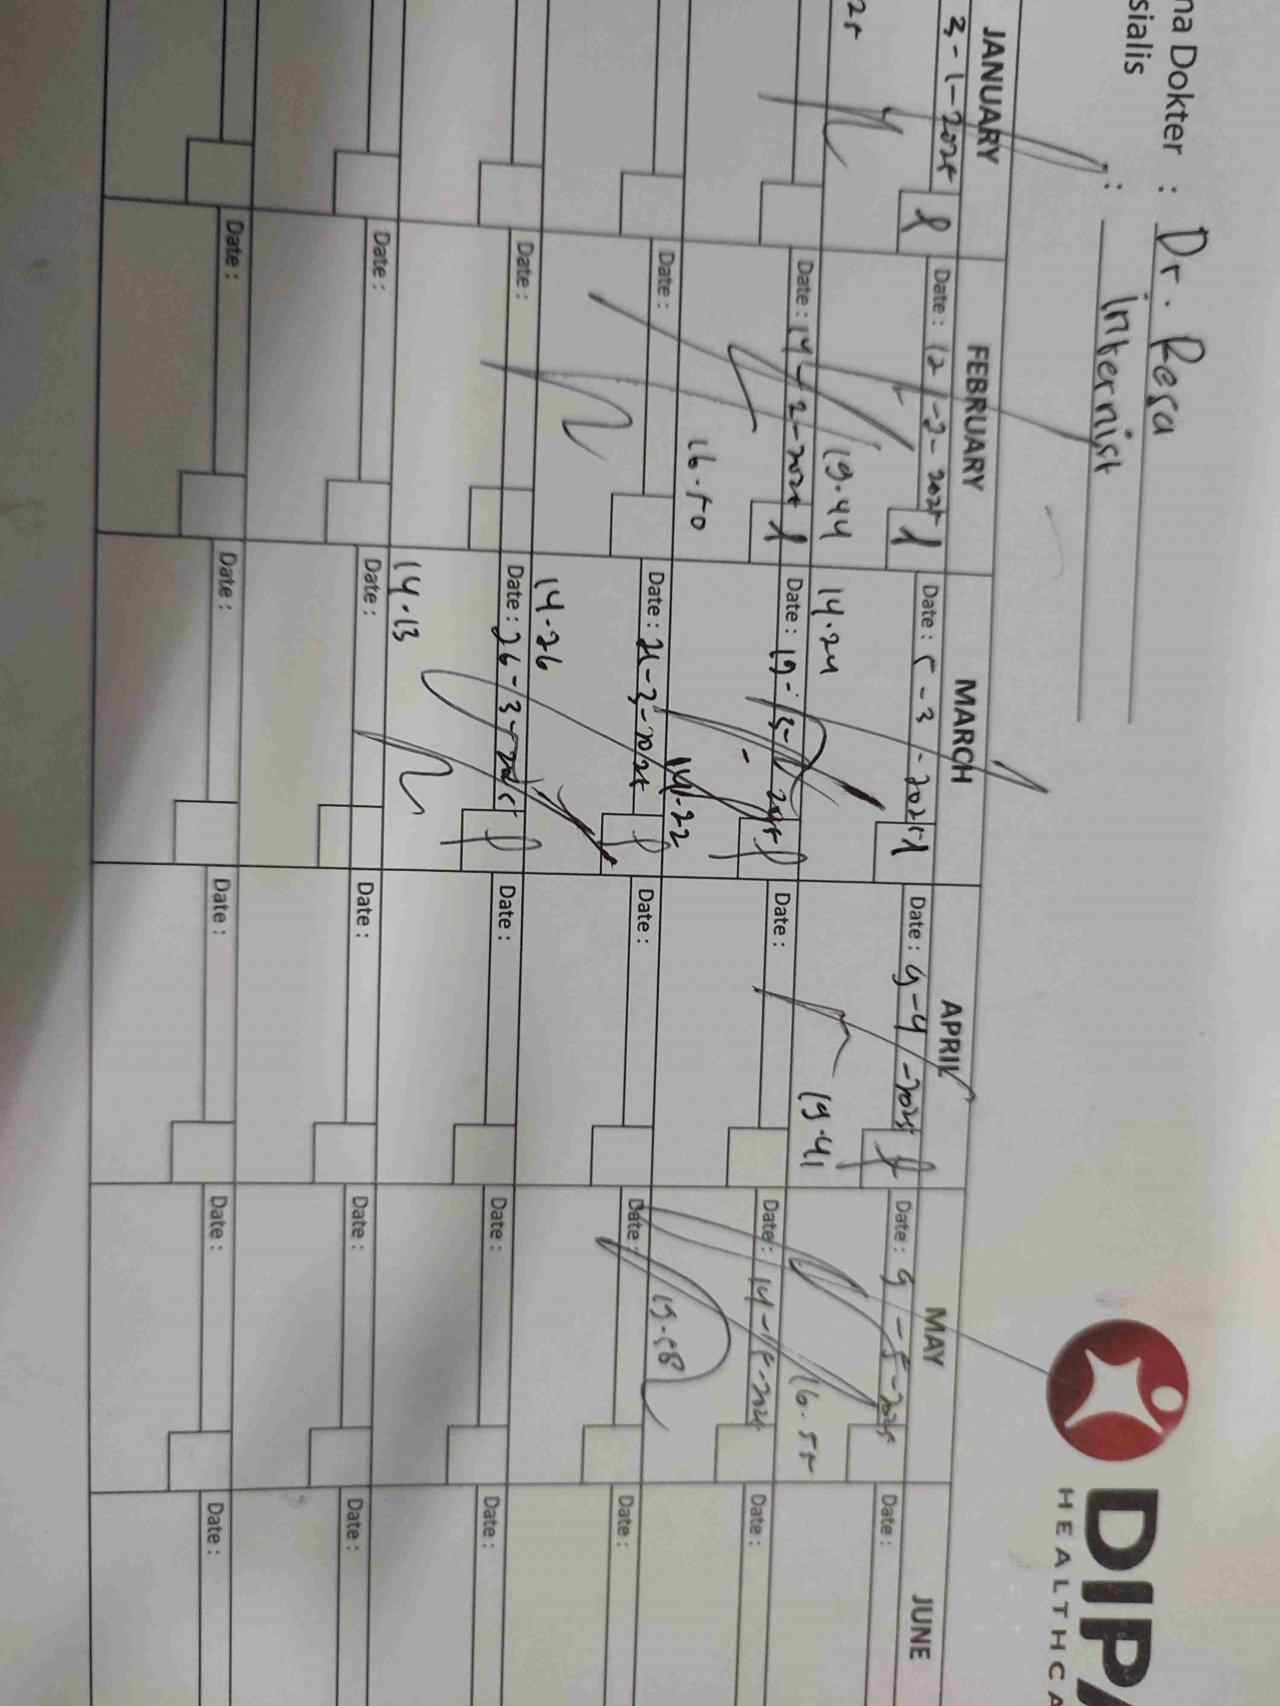 na Dokter : Dr. Resa
sialis : Internist
DIPA
HEALTHCA
JANUARY FEBRUARY MARCH APRIL MAY JUNE
3-1-2025 Date: 12-2-2025 Date: 5-3-2025 Date: 9-4-2025 Date: 9-5-2025 Date:
25 19.44 14.24 19.41 16.55
Date: 14-2-2025 Date: 19-3-2025 Date: Date: 14-5-2025 Date:
16.50 14.22 19.58
Date: Date: 21-3-2025 Date: Date: Date:
14.26
Date: Date: 26-3-2025 Date: Date: Date:
14.13
Date: Date: Date: Date: Date:
Date: Date: Date: Date: Date: